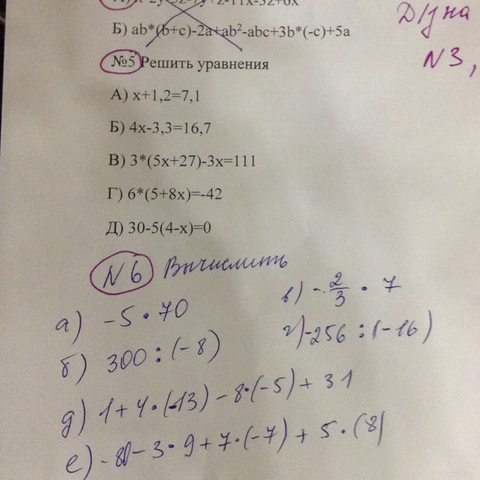 А) x-2y-5z-7y+z-11x-3z+6x
Б) ab*(b+c)-2a+ab²-abc+3b*(-c)+5a
Д/з на
№3,
№5 Решить уравнения
А) x+1,2=7,1
Б) 4x-3,3=16,7
В) 3*(5x+27)-3x=111
Г) 6*(5+8x)=-42
Д) 30-5(4-x)=0
№6 Вычислить
а) -5·70
в) -2/3 · 7
б) 300:(-8)
г) -256:(-16)
д) 1+4·(-13)-8·(-5)+31
е) -81-3·9+7·(-7)+5·(8)